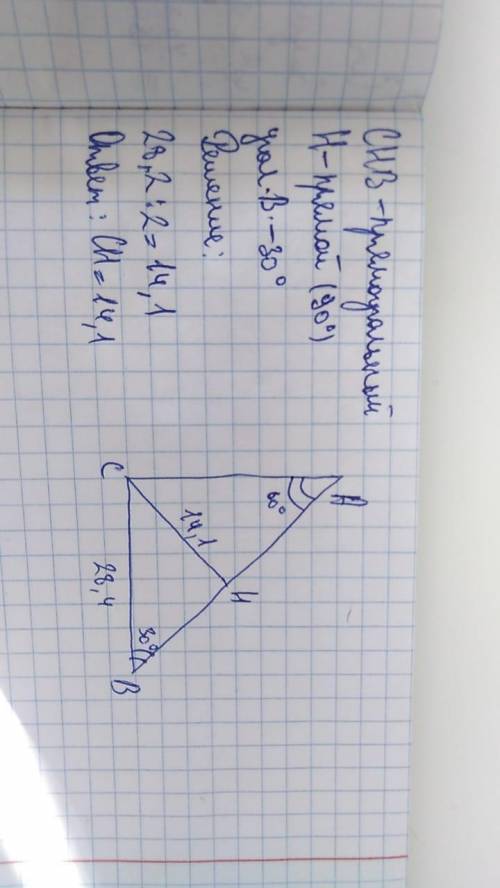 СНВ - прямоугольный
Н - прямой (90°)
угол. В. - 30°
Решение:
28,2 : 2 = 14,1
Ответ: СН = 14,1
А
60°
Н
14,1
С
30°
28,4
В